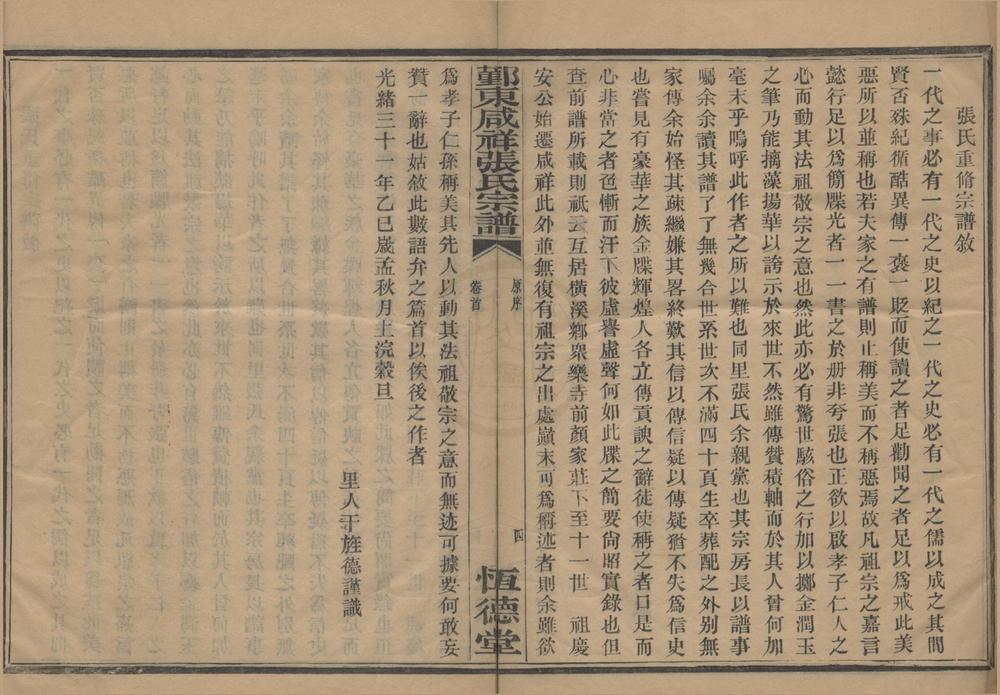 張氏重脩宗譜敘
一代之事必有一代之史以紀之一代之史必有一代之儒以成之其間
賢否殊紀循酷異傳一褒一貶而使讀之者足勸聞之者足以爲戒此美
惡所以並稱也若夫家之有譜則止稱美而不稱惡焉故凡祖宗之嘉言
懿行足以爲簡牒光者一一書之於册非夸張也正欲以啟孝子仁人之
心而動其法祖敬宗之意也然此亦必有驚世駭俗之行加以擲金潤玉
之筆乃能摛藻揚華以誇示於來世不然雖傳贊積軸而於其人曾何加
毫末乎嗚呼此作者之所以難也同里張氏余親黨也其宗房長以譜事
囑余余讀其譜了了無幾合世系世次不滿四十頁生卒葬配之外别無
家傳余始怪其疎繼嫌其畧終歎其信以傳信疑以傳疑猶不失爲信史
也嘗見有豪華之族金牒輝煌人各立傳貢諛之辭徒使稱之者口是而
心非當之者色慚而汗下彼虛譽虛聲何如此牒之簡要尙昭實錄也但
查前譜所載則祇云互居橫溪鄉衆樂寺前顏家莊下至十一世 祖慶
安公始遷咸祥此外並無復有祖宗之出處巔末可爲稱述者則余雖欲
鄞東咸祥張氏宗譜
原序
卷首
四
恆德堂
爲孝子仁孫稱美其先人以動其法祖敬宗之意而無迹可據要何敢妄
贊一辭也姑敘此數語弁之篇首以俟後之作者
光緒三十一年乙巳歲孟秋月上浣穀旦
里人于旌德謹識